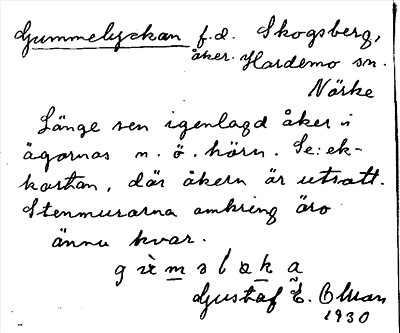 Gummelyckan f.d. Skogsberg,
åker. Hardemo sn.
Närke
Länge sen igenlagd åker i
ägornas n. ö. hörn. Se: ek-
kartan, där åkern är utsatt.
Stenmurarna omkring äro
ännu kvar.
Gustaf E.
1930